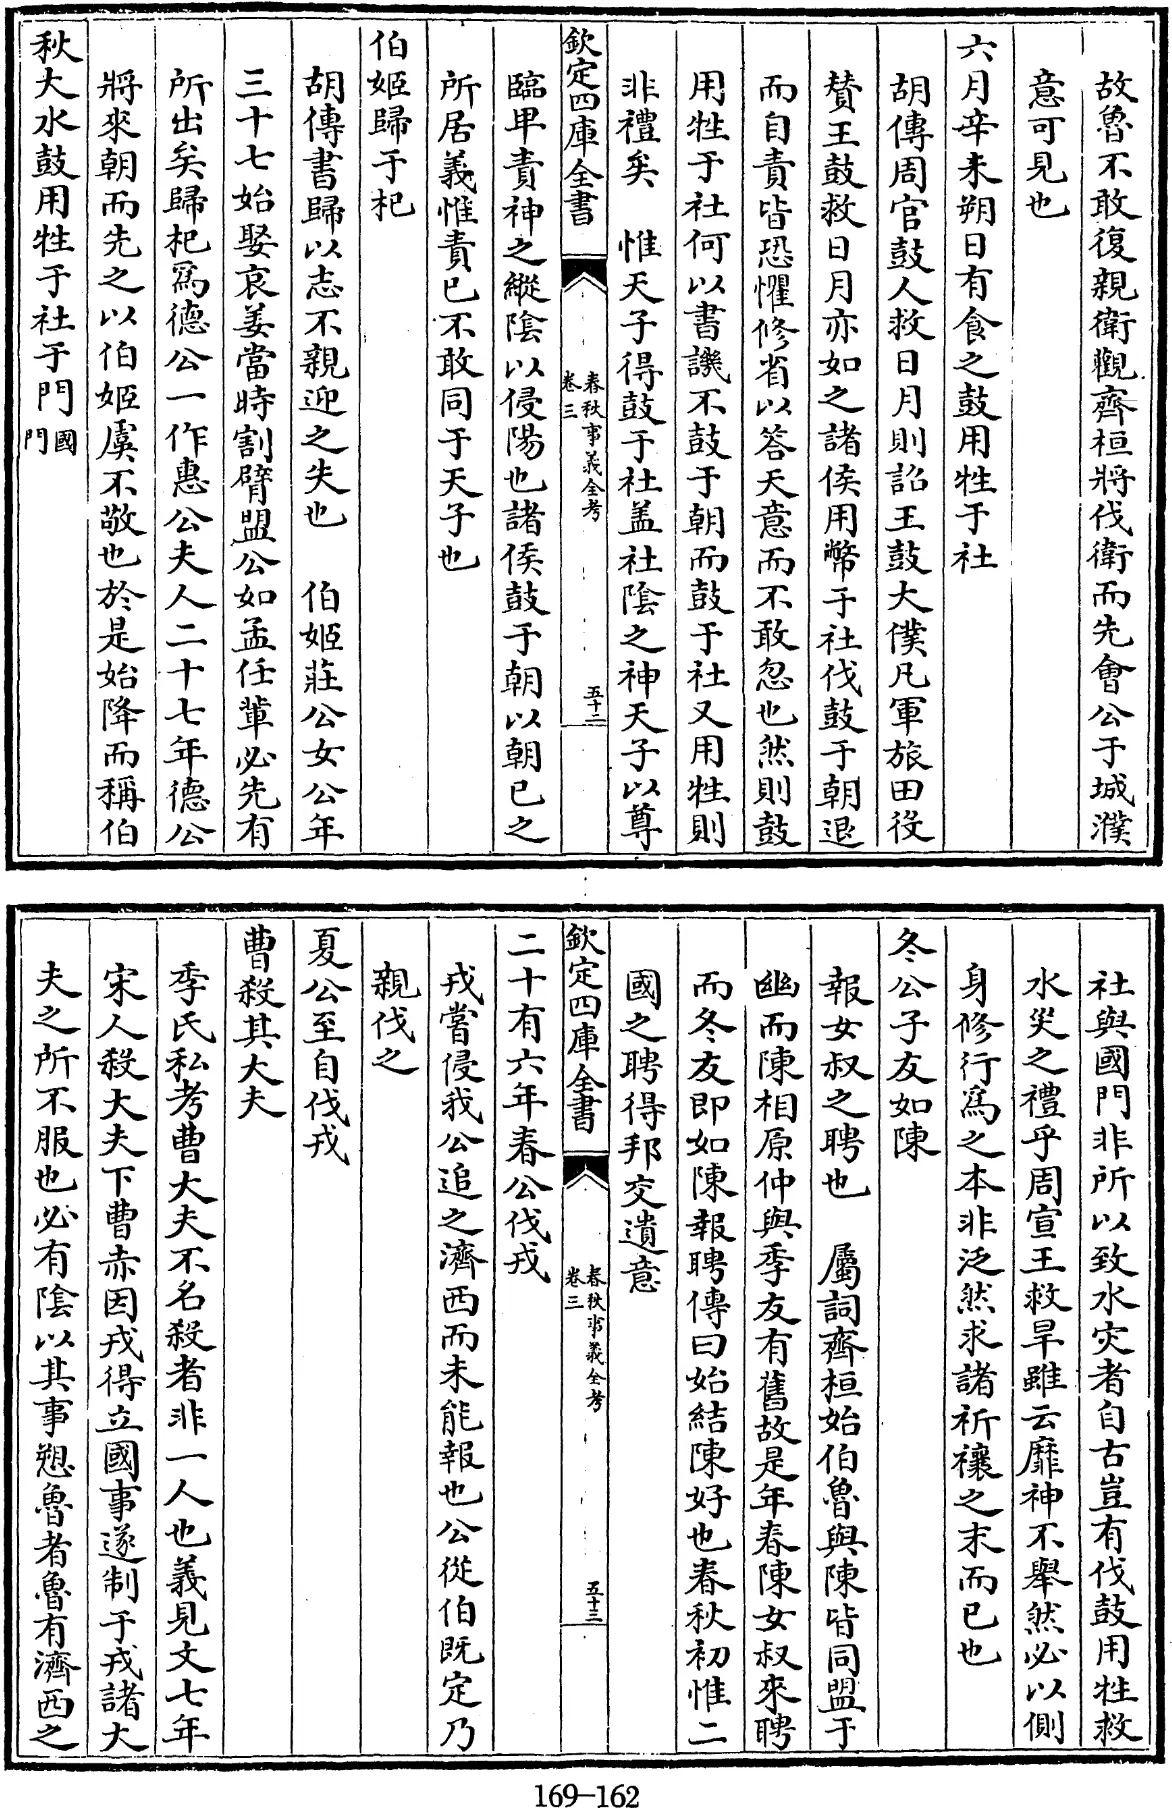 故魯不敢復親衛觀齊桓將伐衛而先會公于城濮
意可見也
六月辛未朔日有食之鼓用牲于社
胡傳周官鼓人救日月則詔王鼓大僕凡軍旅田役
賛王鼓救日月亦如之諸侯用幣于社伐鼓于朝退
而自責皆恐懼修省以答天意而不敢忽也然則鼓
用牲于社何以書譏不鼓于朝而鼓于社又用牲則
非禮矣 惟天子得鼓于社盖社陰之神天子以尊
欽定四庫全書
春秋事義全考
卷三
五十二
臨卑責神之縱陰以侵陽也諸侯鼓于朝以朝已之
所居義惟責已不敢同于天子也
伯姬歸于杞
胡傳書歸以志不親迎之失也 伯姬莊公女公年
三十七始娶哀姜當時割臂盟公如孟任輩必先有
所出矣歸杞為德公一作惠公夫人二十七年德公
將來朝而先之以伯姬虞不敬也於是始降而稱伯
秋大水鼓用牲于社于門國門
社與國門非所以致水灾者自古豈有伐鼓用牲救
水災之禮乎周宣王救旱雖云靡神不舉然必以側
身修行為之本非泛然求諸祈禳之末而已也
冬公子友如陳
報女叔之聘也 屬詞齊桓始伯魯與陳皆同盟于
幽而陳相原仲與季友有舊故是年春陳女叔來聘
而冬友即如陳報聘傳曰始結陳好也春秋初惟二
國之聘得邦交遺意
欽定四庫全書
春秋事義全考
卷三
五十三
二十有六年春公伐戎
戎嘗侵我公追之濟西而未能報也公從伯既定乃
親伐之
夏公至自伐戎
曹殺其大夫
季氏私考曹大夫不名殺者非一人也義見文七年
宋人殺大夫下曹赤因戎得立國事遂制于戎諸大
夫之所不服也必有陰以其事愬魯者魯有濟西之
169-162